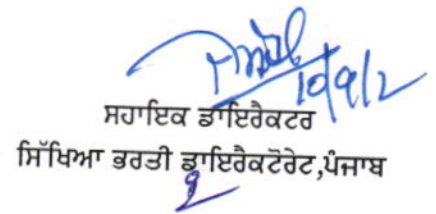 10/9/2
ਸਹਾਇਕ ਡਾਇਰੈਕਟਰ
ਸਿੱਖਿਆ ਭਰਤੀ ਡਾਇਰੈਕਟੋਰੇਟ,ਪੰਜਾਬ